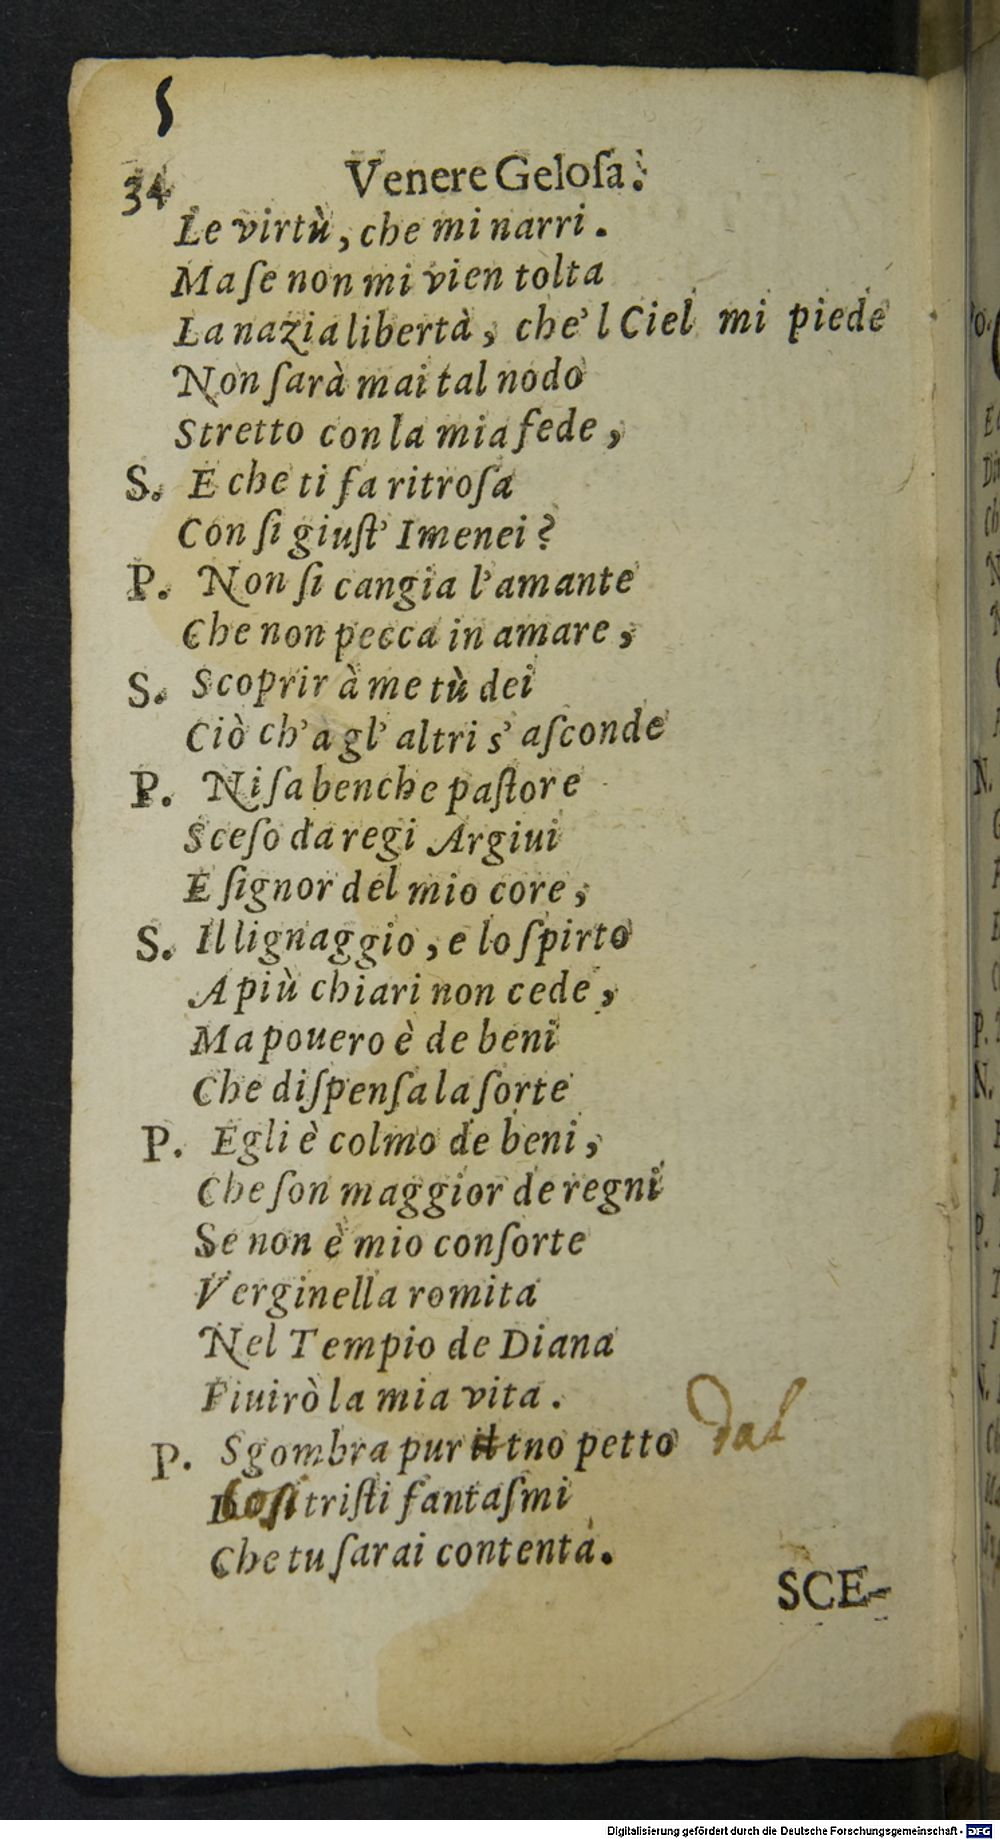 S
34 Venere Geloſa.
Le virtù, che mi narri.
Ma ſe non mi vien tolta
La nazia libertà, che'l Ciel mi piede
Non ſarà mai tal nodo
Stretto con la mia fede,
S. E che ti fa ritroſa
Con ſi giuſt' Imenei?
P. Non ſi cangia l'amante
Che non pecca in amare,
S. Scoprir à me tù dei
Ciò ch'a gl' altri s' aſconde
P. Niſa benche paſtore
Sceſo da regi Argiui
E ſignor del mio core,
S. Il lignaggio, e lo ſpirto
A più chiari non cede,
Ma pouero è de beni
Che diſpenſa la ſorte
P. Egli è colmo de beni,
Che ſon maggior de regni
Se non è mio conſorte
Verginella romita
Nel Tempio de Diana
Fiuirò la mia vita.
P. Sgombra pur il tno petto dal
triſti fantaſmi
Che tu ſarai contenta.
SCE-
Digitalisierung gefördert durch die Deutsche Forschungsgemeinschaft - DFG